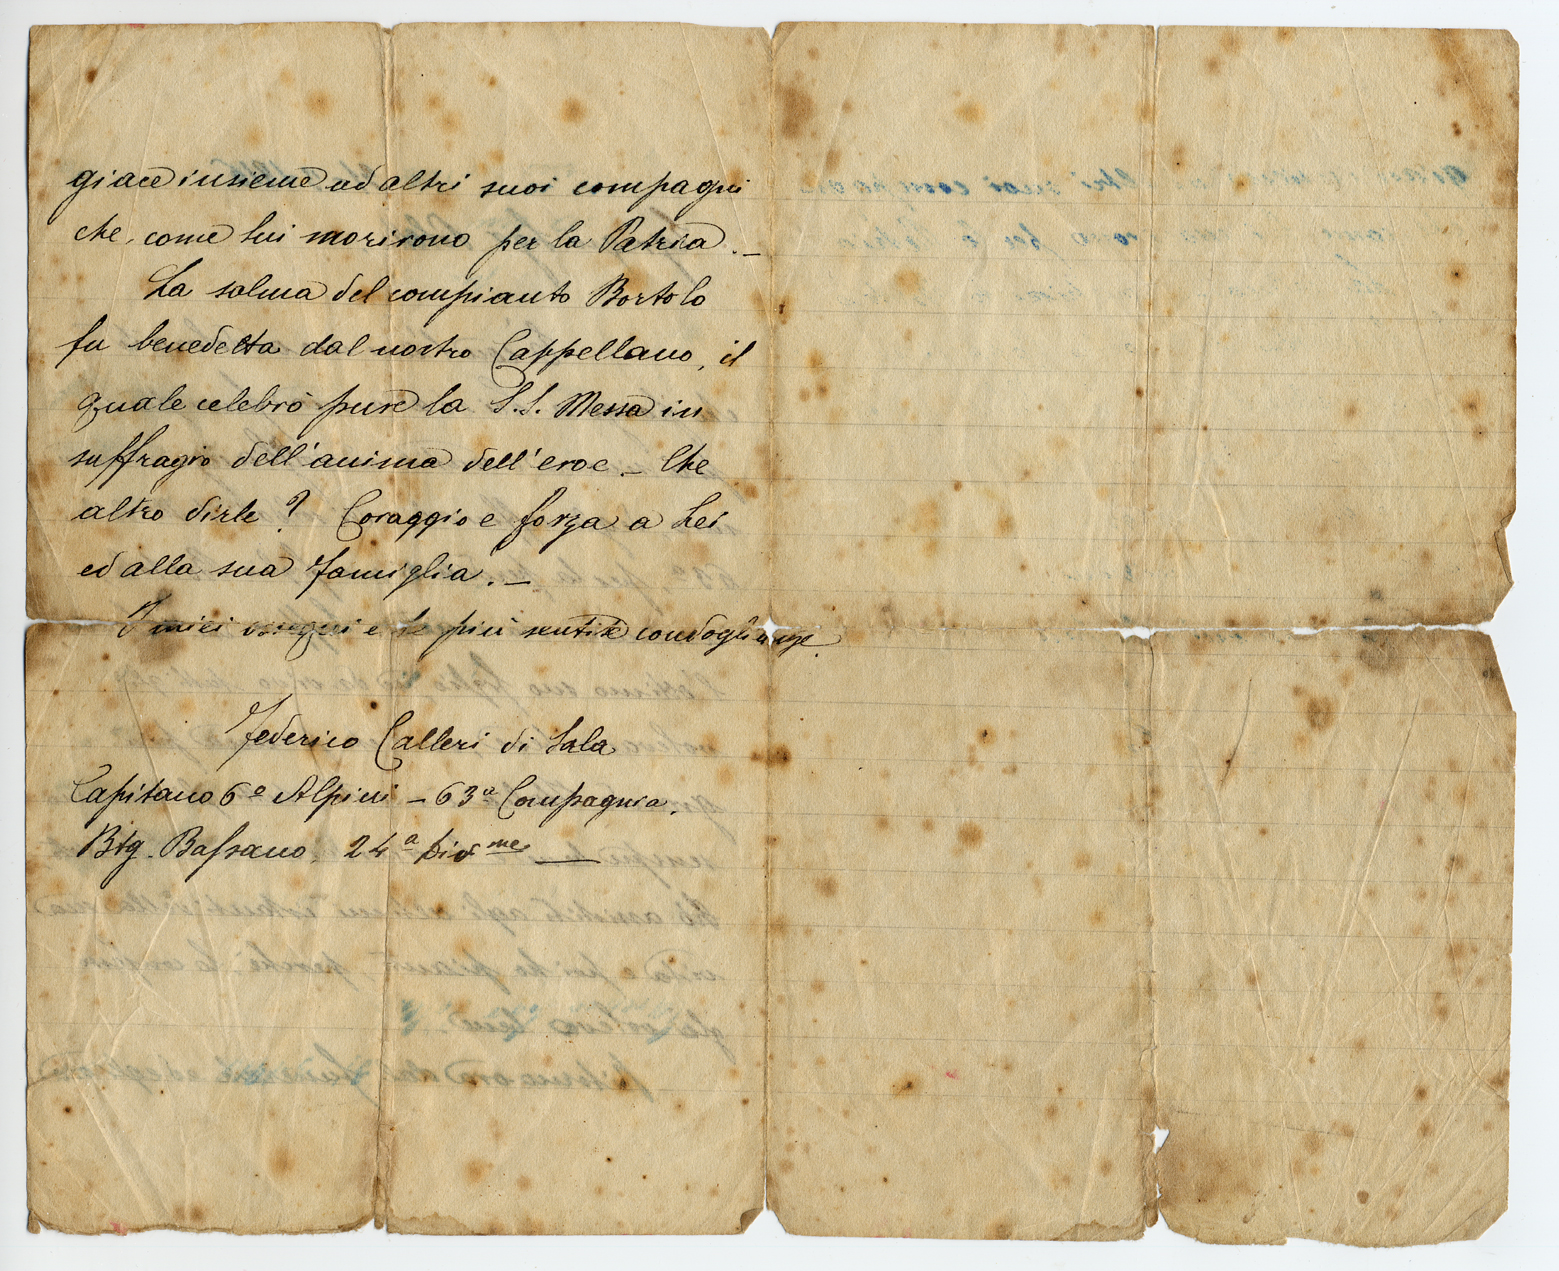 giace insieme ad altri suoi compagni
che, come lui morirono per la Patria._
La salma del compianto Bortolo
fu benedetta dal nostro Cappellano, il
quale celebrò pure la S.S. Messa in
suffragio dell'anima dell'eroe _ Che
altro dirle? Coraggio e forza a Lei
ed alla sua famiglia._
I miei ossequi e le più sentite condoglianze.
Federico Calleri di Sala
Capitano 6º Alpini - 63ª Compagnia.
Btg. Bassano, 24ª Divne